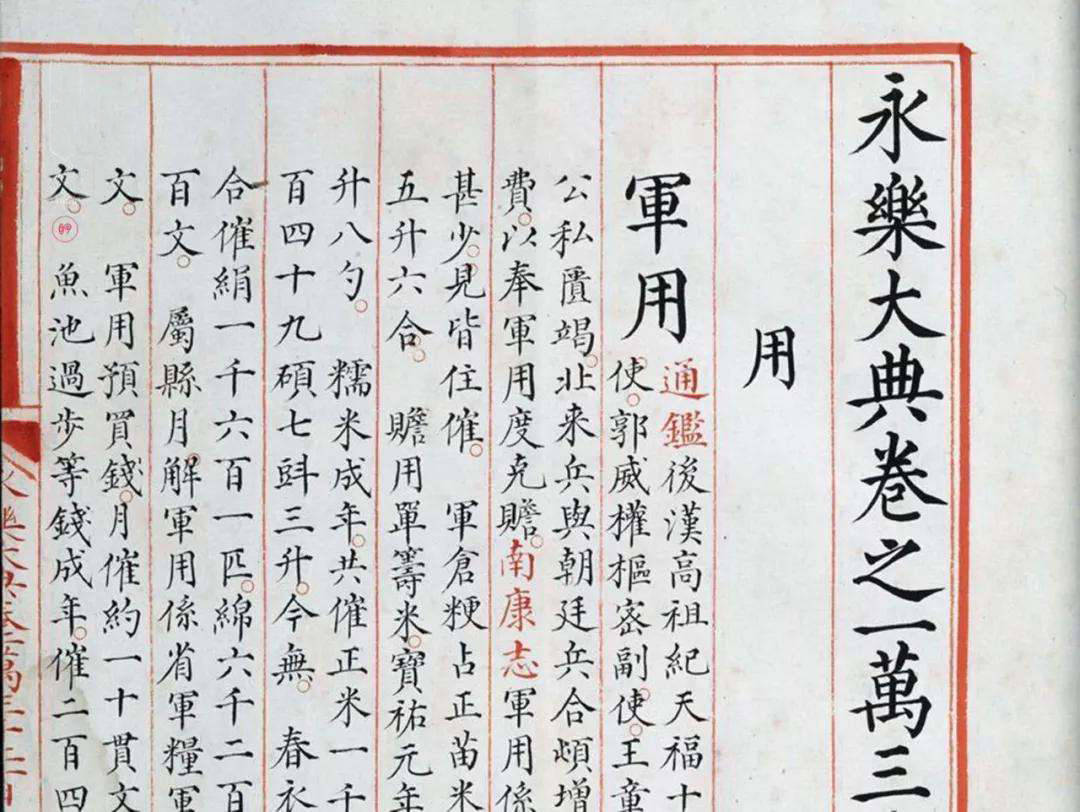 永樂大典卷之一萬三
用
軍用
通鑑後漢高祖紀天福十
使。郭威權樞密副使。王章
公私匱竭。北来兵與朝廷兵合頗增
費。以奉軍用度克贍。南康志軍用係
甚少。見皆住催。 軍倉粳占正苗米
五升六合。 贍用單籌米。寶祐元年
升八勺。 糯米成年。共催正米一千
百四十九碩七㪷三升。今無。 春衣
合催絹一千六百一匹。綿六千二百
百文。 屬縣月解軍用係省軍糧軍
文。 軍用預買錢。月催約一十貫文
文。 魚池過步等錢成年。催二百四